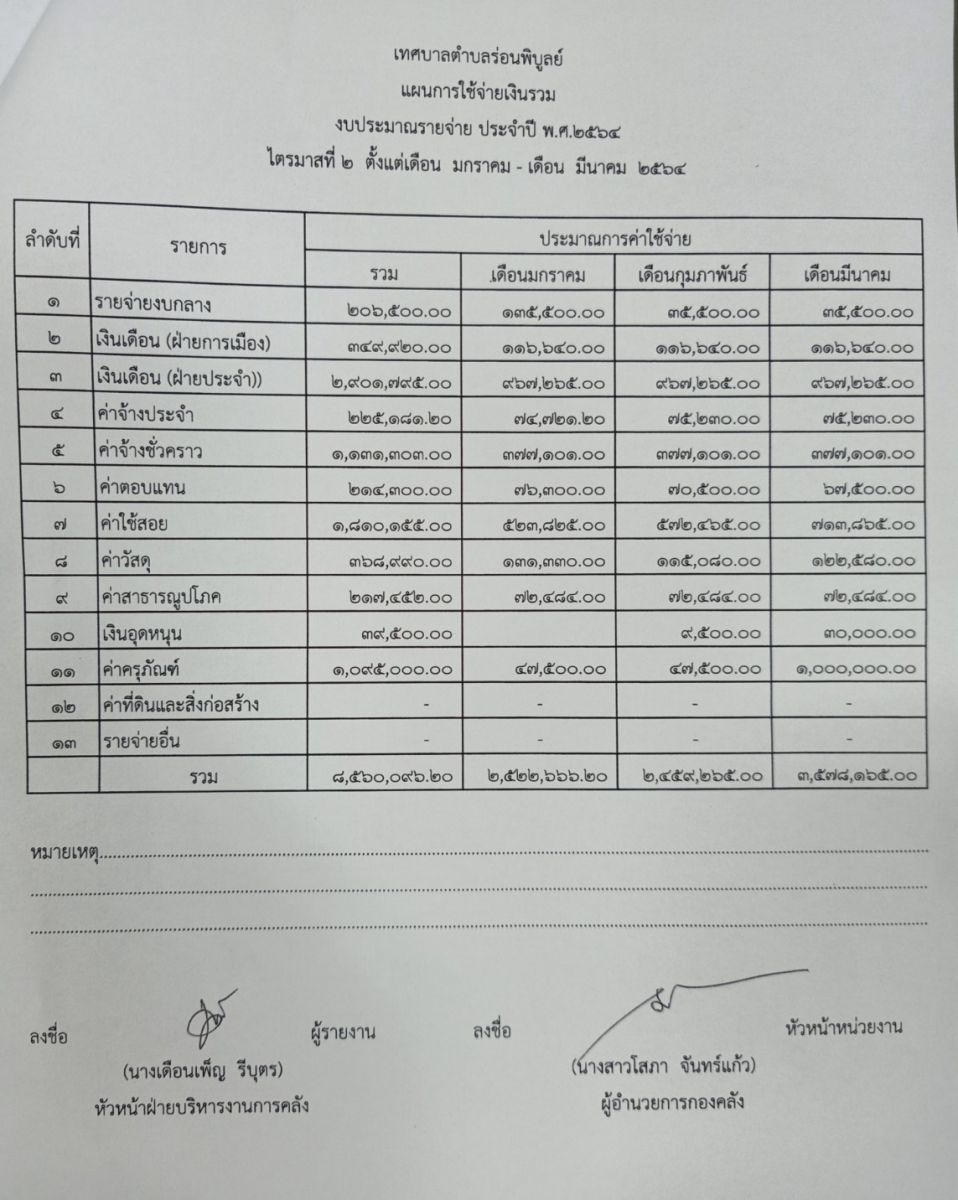 เทศบาลตำบลร่อนพิบูลย์
แผนการใช้จ่ายเงินรวม
งบประมาณรายจ่าย ประจำปี พ.ศ.๒๕๖๔
ไตรมาสที่ ๒ ตั้งแต่เดือน มกราคม - เดือน มีนาคม ๒๕๖๔
ลำดับที่ รายการ ประมาณการค่าใช้จ่าย
รวม เดือนมกราคม เดือนกุมภาพันธ์ เดือนมีนาคม
๑ รายจ่ายงบกลาง ๒๐๖,๕๐๐.๐๐ ๑๓๕,๕๐๐.๐๐ ๓๕,๕๐๐.๐๐ ๓๕,๕๐๐.๐๐
๒ เงินเดือน (ฝ่ายการเมือง) ๓๔๙,๙๒๐.๐๐ ๑๑๖,๖๔๐.๐๐ ๑๑๖,๖๔๐.๐๐ ๑๑๖,๖๔๐.๐๐
๓ เงินเดือน (ฝ่ายประจำ)) ๒,๙๐๑,๗๙๕.๐๐ ๙๖๗,๒๖๕.๐๐ ๙๖๗,๒๖๕.๐๐ ๙๖๗,๒๖๕.๐๐
๔ ค่าจ้างประจำ ๒๒๕,๑๘๑.๒๐ ๗๔,๗๒๑.๒๐ ๗๕,๒๓๐.๐๐ ๗๕,๒๓๐.๐๐
๕ ค่าจ้างชั่วคราว ๑,๑๓๑,๓๐๓.๐๐ ๓๗๗,๑๐๑.๐๐ ๓๗๗,๑๐๑.๐๐ ๓๗๗,๑๐๑.๐๐
๖ ค่าตอบแทน ๒๑๔,๓๐๐.๐๐ ๗๖,๓๐๐.๐๐ ๗๐,๕๐๐.๐๐ ๖๗,๕๐๐.๐๐
๗ ค่าใช้สอย ๑,๘๑๐,๑๕๕.๐๐ ๕๒๓,๘๒๕.๐๐ ๕๗๒,๔๖๕.๐๐ ๗๑๓,๘๖๕.๐๐
๘ ค่าวัสดุ ๓๖๘,๙๙๐.๐๐ ๑๓๑,๓๓๐.๐๐ ๑๑๕,๐๘๐.๐๐ ๑๒๒,๕๘๐.๐๐
๙ ค่าสาธารณูปโภค ๒๑๗,๔๕๒.๐๐ ๗๒,๔๘๔.๐๐ ๗๒,๔๘๔.๐๐ ๗๒,๔๘๔.๐๐
๑๐ เงินอุดหนุน ๓๙,๕๐๐.๐๐ ๙,๕๐๐.๐๐ ๓๐,๐๐๐.๐๐
๑๑ ค่าครุภัณฑ์ ๑,๐๙๕,๐๐๐.๐๐ ๔๗,๕๐๐.๐๐ ๔๗,๕๐๐.๐๐ ๑,๐๐๐,๐๐๐.๐๐
๑๒ ค่าที่ดินและสิ่งก่อสร้าง - - - -
๑๓ รายจ่ายอื่น - - - -
รวม ๘,๕๖๐,๐๙๖.๒๐ ๒,๕๒๒,๖๖๖.๒๐ ๒,๔๕๙,๒๖๕.๐๐ ๓,๕๗๘,๑๖๕.๐๐
หมายเหตุ
ลงชื่อ ผู้รายงาน ลงชื่อ หัวหน้าหน่วยงาน
(นางเดือนเพ็ญ รีบุตร) (นางสาวโสภา จันทร์แก้ว)
หัวหน้าฝ่ายบริหารงานการคลัง ผู้อำนวยการกองคลัง